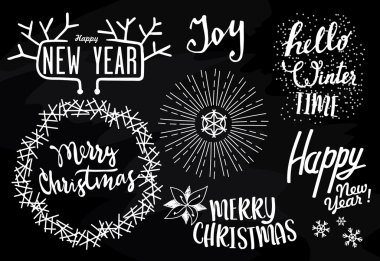 Happy
NEW YEAR
Joy
hello
Winter
TIME
Merry
Christmas
Happy
New Year!
MERRY
CHRISTMAS